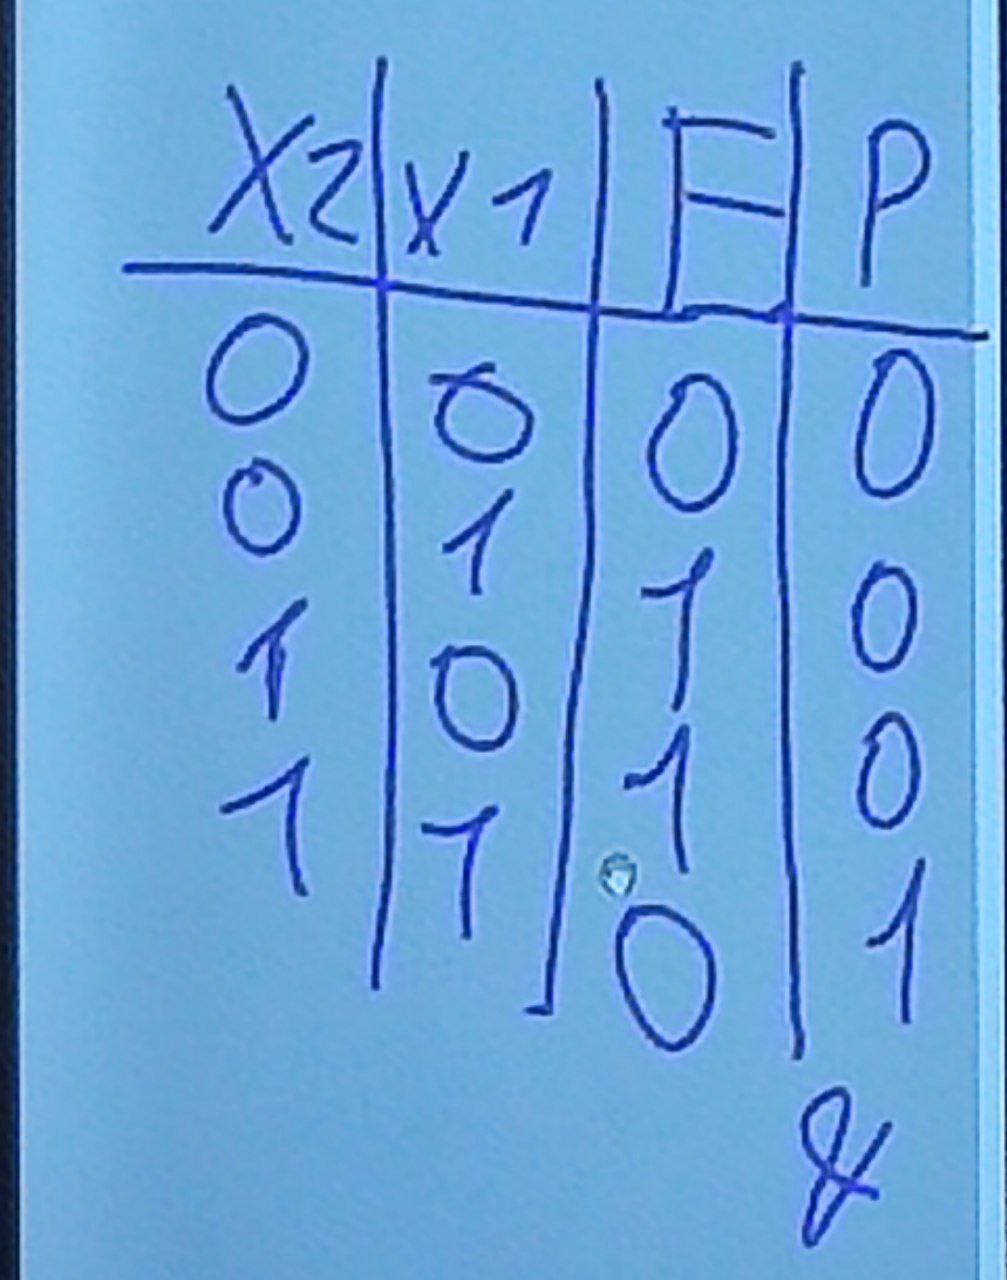 X2 X1 F P
0 0 0 0
0 1 1 0
1 0 1 0
1 1 0 1
&